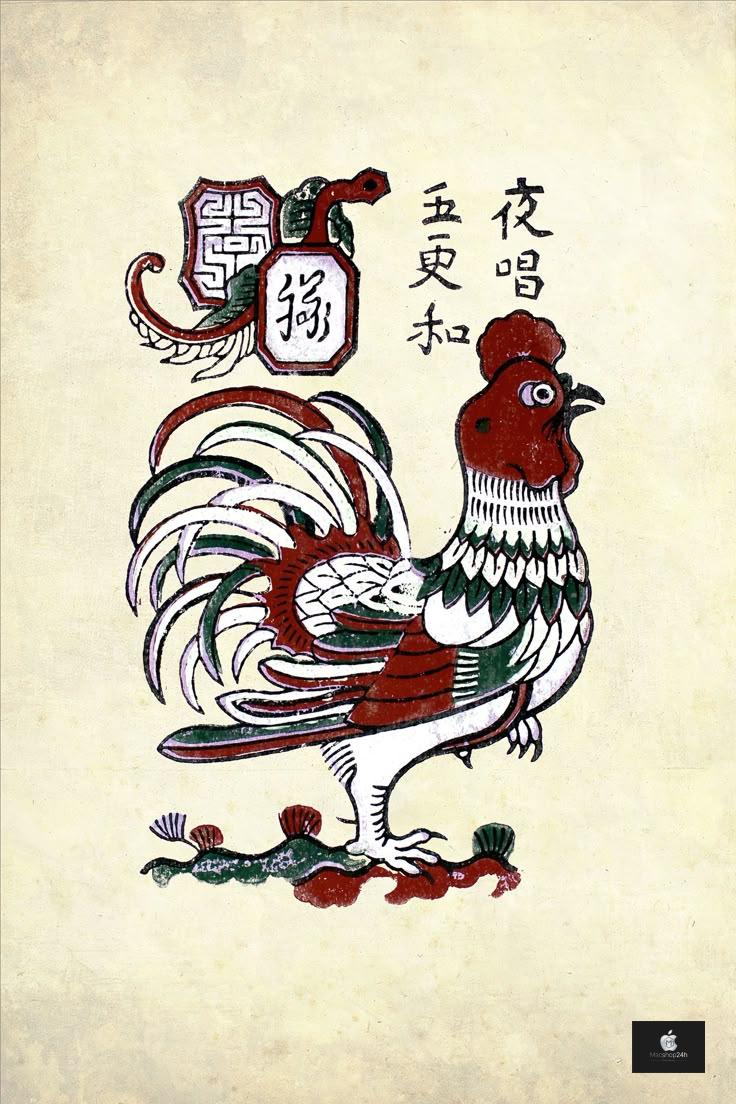 夜唱
五更和
祿
Macshop24h